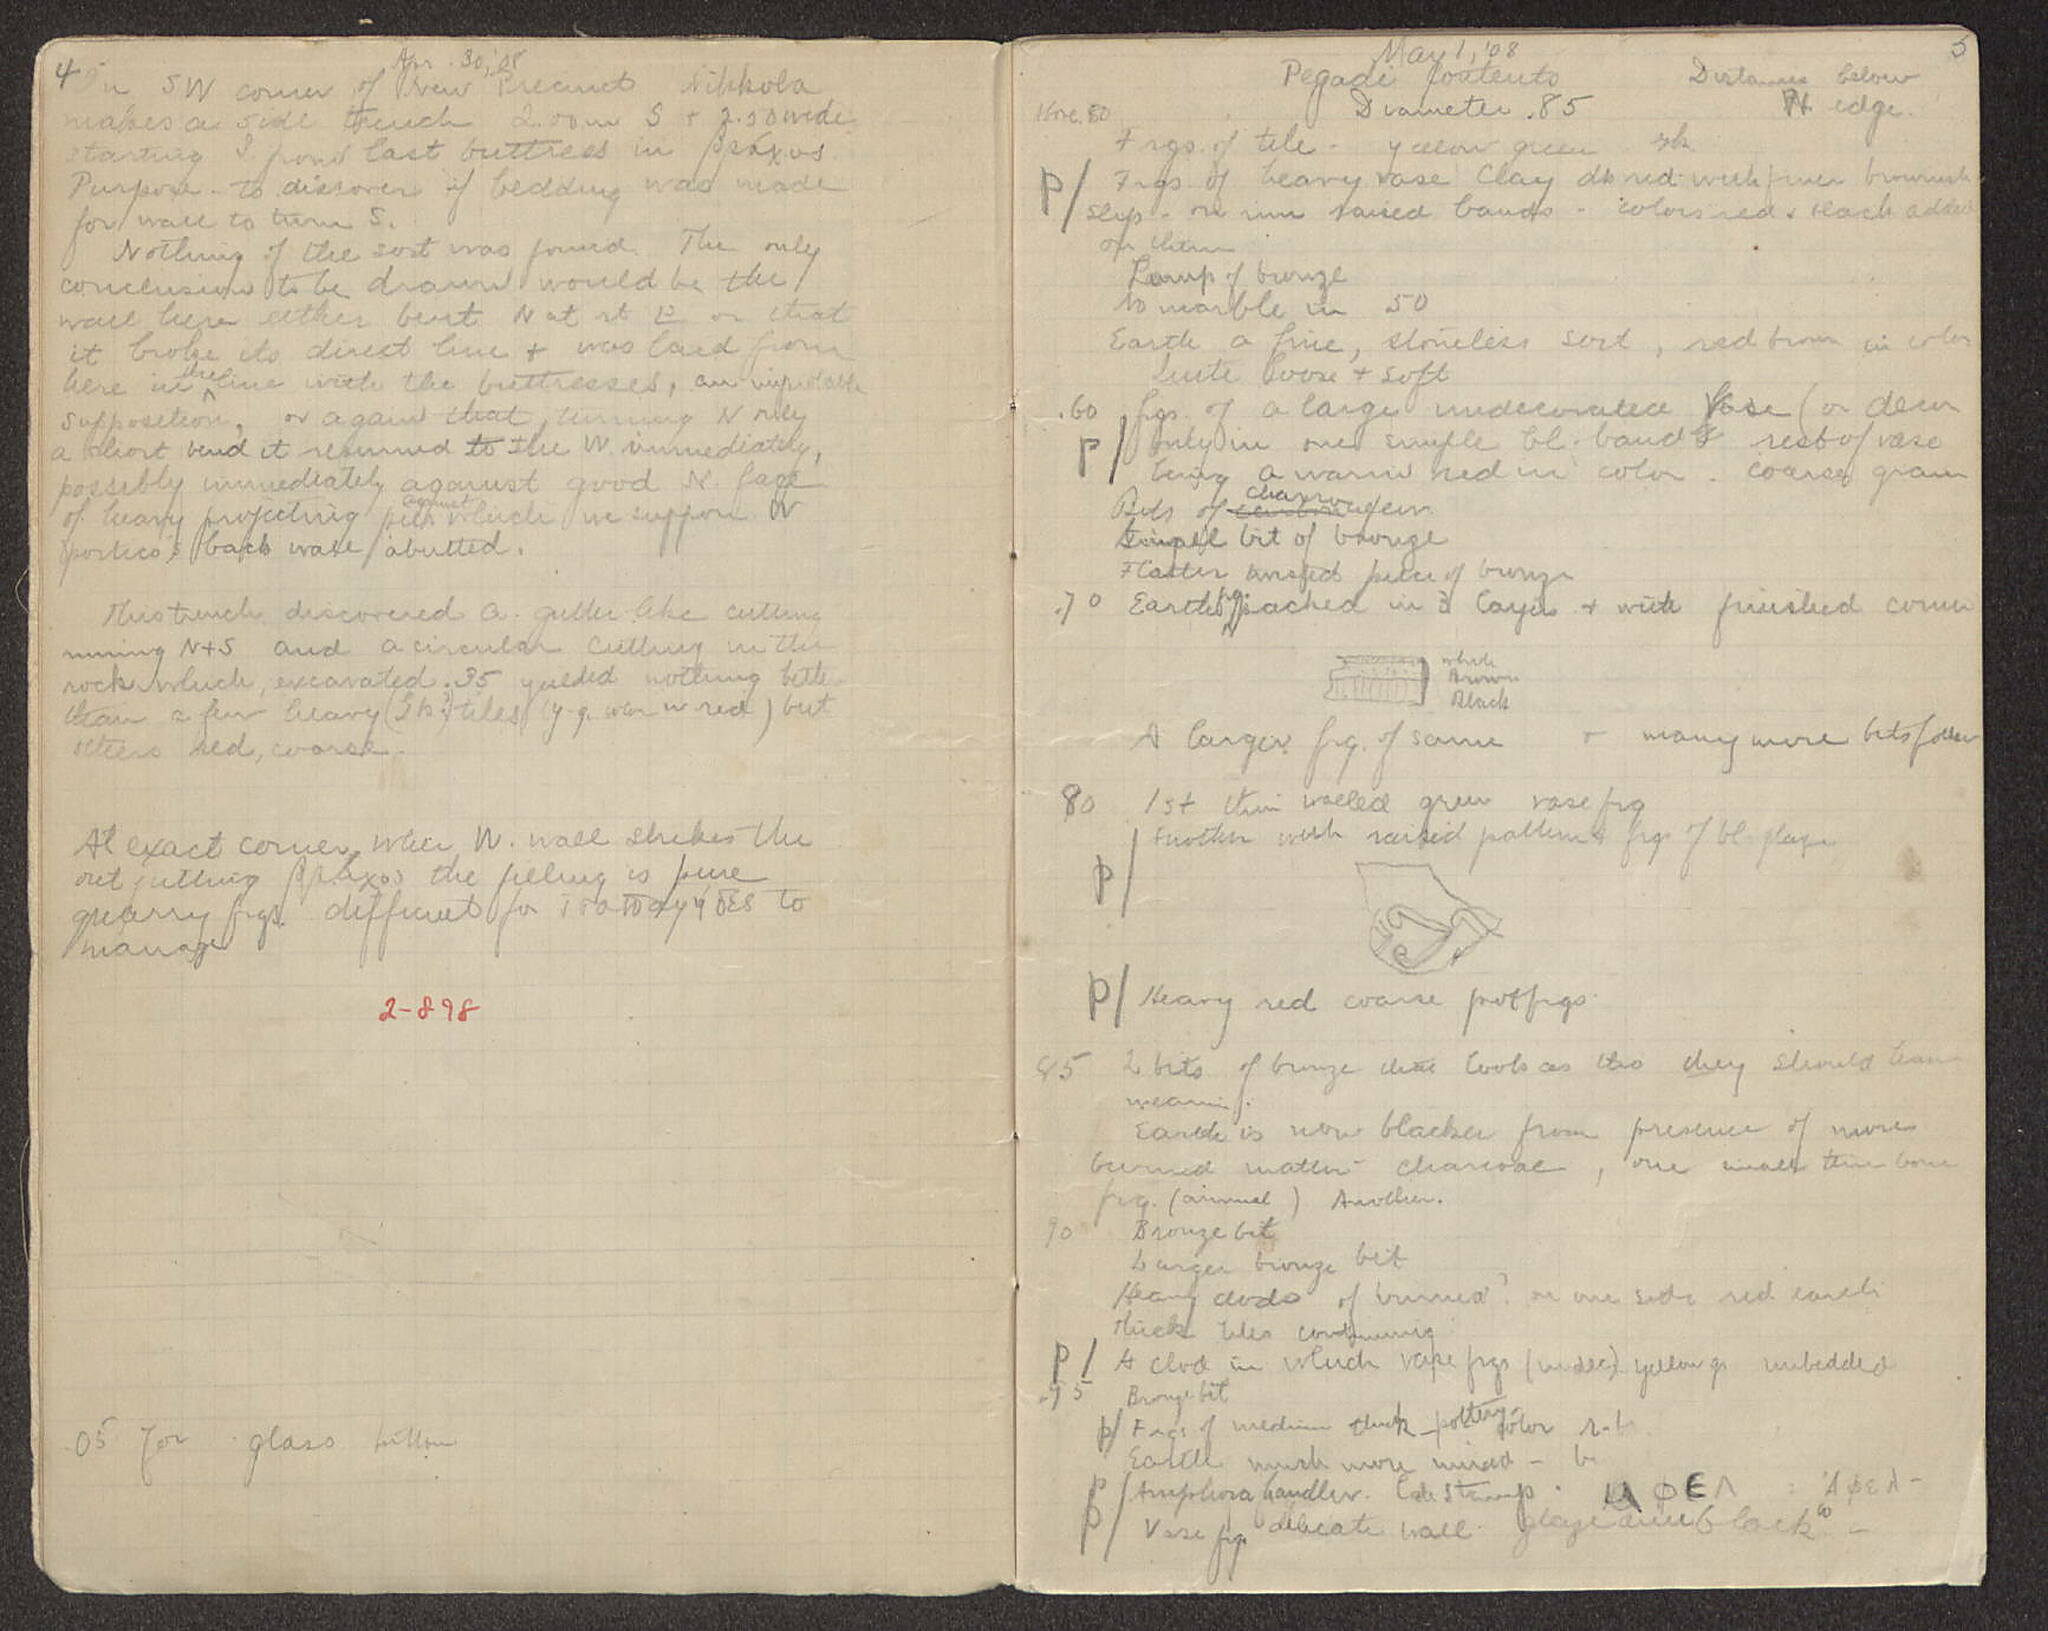 4
Apr. 30, '08
In SW corner of New Precinct Nikkola
makes a side trench 2.00m S + 2.50 wide
starting S. from last buttress in βράχος.
Purpose - to discover if bedding was made
for wall to turn S.
Nothing of the sort was found. The only
conclusion to be drawn would be the
wall here either bent N at rt or that
it broke its direct line + was laid from
here in the line with the buttresses, an improbable
supposition, or again that, turning N only
a short bend it resumed to the W. immediately,
possibly immediately against good N. face
of heavy projecting pier against which we suppose W
portico's back wall abutted.
This trench discovered a gutter like cutting
running N+S and a circular cutting in the
rock which, excavated .35 yielded nothing better
than a few heavy tiles (y-g. red) but
others red, coarse.
At exact corner, where W. wall strikes the
out jutting βράχος the filling is pure
quarry frgs. difficult for to
manage
2-898
.05 for glass
5
May 1, '08
Pegadi Contents Distances below
Diameter .85 N. edge.
.50
Frgs. of tile - yellow green
p/ Frgs. of heavy vase clay red with finer brownish
slip - on rim raised bands - colors red + black added
on them
Lump of bronze
No marble in 50
Earth a fine, stoneless sort, red brown in color
quite loose + soft
.60 frgs. of a large undecorated vase (or decor
p/ only in one simple bl. band) rest of vase
being a warm red in color. coarse grain
Bits of
Small bit of bronze
Flatter twisted piece of bronze
.70 Earth packed in 3 layers + with finished corner
white
Brown
Black
A larger frg. of same + many more bits follow
80 1st thin walled green vase frg
p/ Another with raised pattern frg of bl. glaze
p/ Heavy red coarse pot frgs.
85 2 bits of bronze that look as tho they should have
meaning.
Earth is now blacker from presence of more
burned matter - charcoal, one small thin bone
frg. (animal) Another.
90 Bronze bit
Larger bronze bit
Heavy clods of burned? on one side red earth
thick tiles continuing
p/ A clod in which vase frgs yellow g. imbedded
.95 Bronze bit
p/ Frgs of medium thick pottery color r-b
Earth much more mixed -
p/ Amphora handle. stamp. ΦΕΛ
p/ Vase frg delicate wall glaze black -